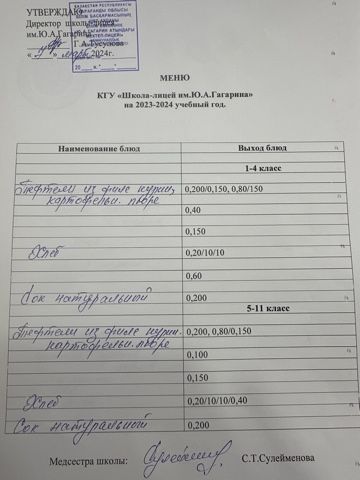 УТВЕРЖДАЮ
Директор школы-лицея
им.Ю.А.Гагарина
Г.А.Тусупова
2024г.
ҚАЗАҚСТАН РЕСПУБЛИКАСЫ
МЕНЮ
КГУ «Школа-лицей им.Ю.А.Гагарина»
на 2023-2024 учебный год.
Наименование блюд Выход блюд
1-4 класс
Тефтели из филе куриц, 0,200/0,150, 0,80/150
картофельн. пюре
0,40
0,150
Хлеб 0,20/10/10
0,60
Сок натуральной 0,200
5-11 класс
Тефтели из филе куриц. 0,200, 0,80/0,150
картофельн. пюре
0,100
0,150
Хлеб 0,20/10/10/0,40
Сок натуральной 0,200
Медсестра школы: С.Т.Сулейменова